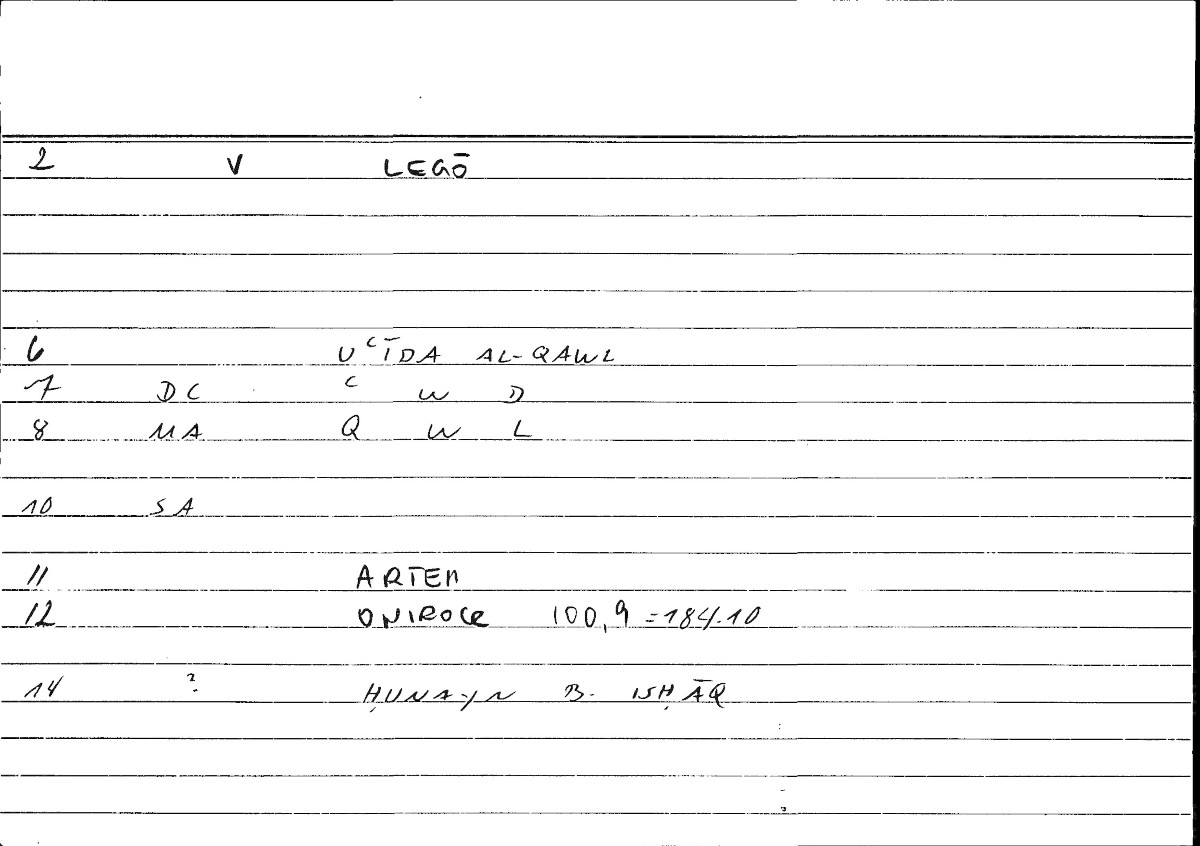 2 V LEGŌ
6 UʿĪDA AL-QAWL
7 DC ʿ W D
8 MA Q W L
10 SA
11 ARTEM
12 ONIROCR 100,9 = 184.10
14 ? ḤUNAYN B. ISḤĀQ